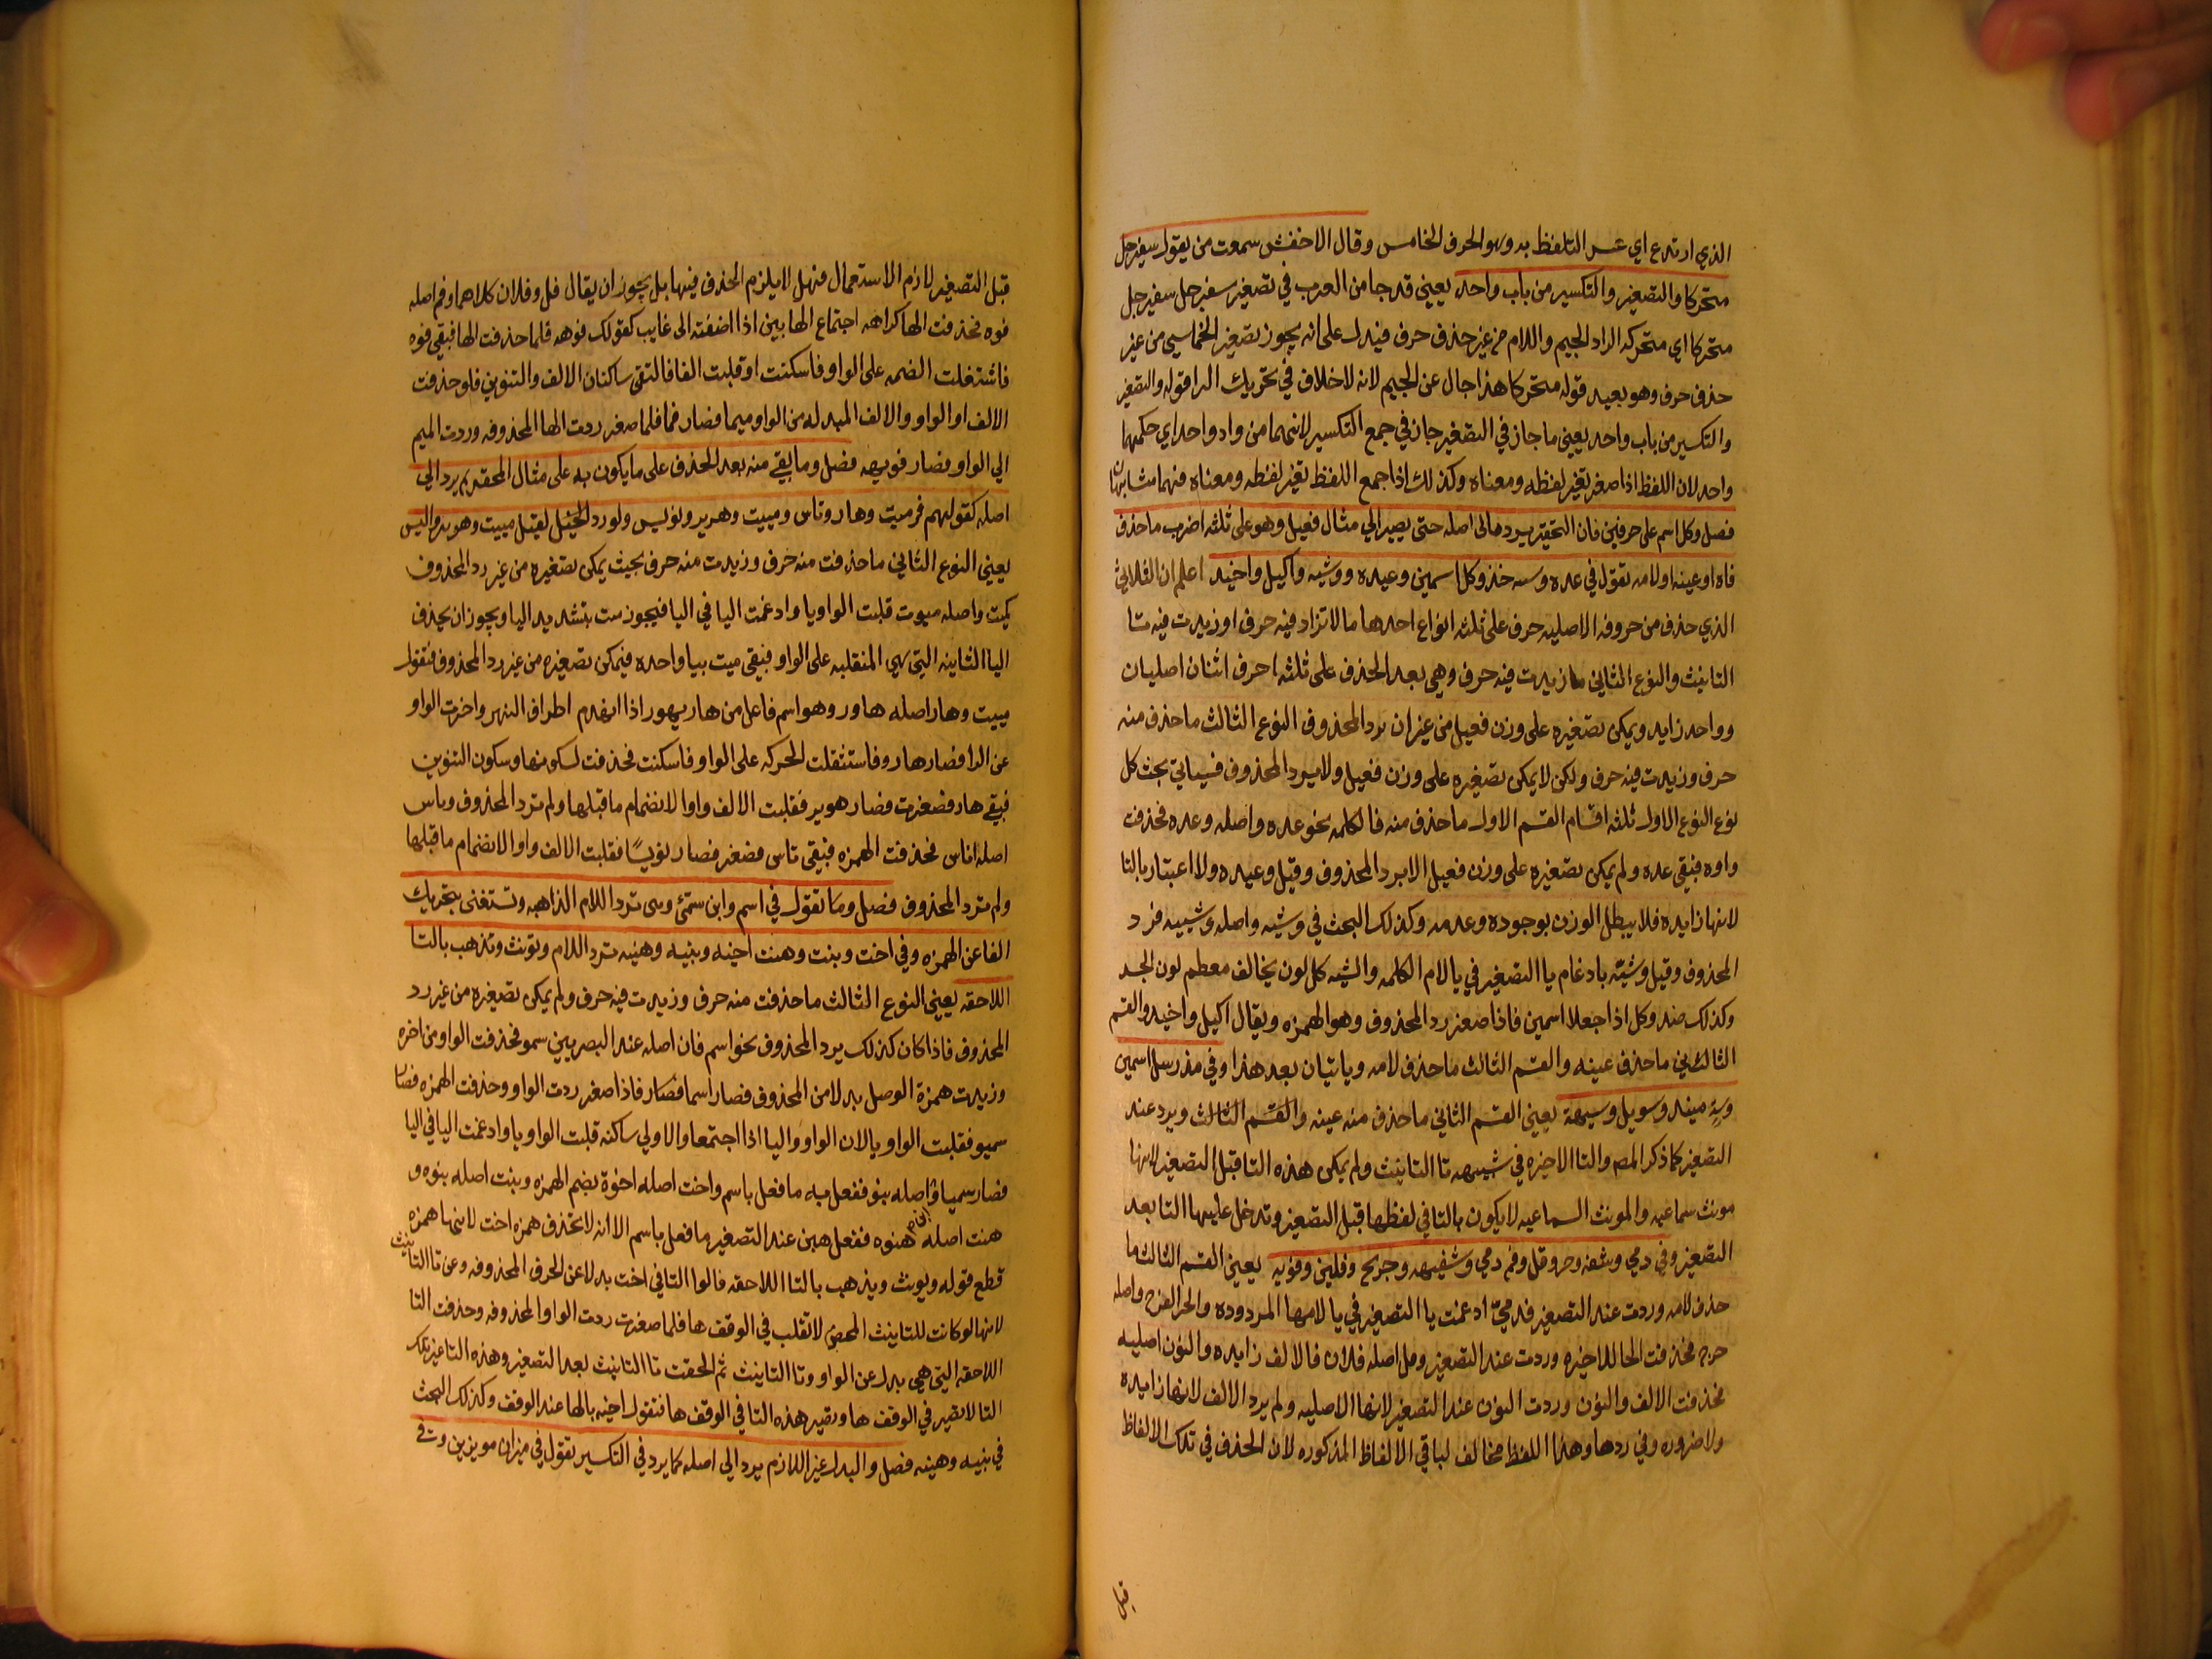 الذي ارتدع اي عسر التلفظ به وهو الحرف الخامس وقال الاخفش سمعت من يقول سفيرجل
متحركا والتصغير والتكسير من باب واحد يعني قد جا من العرب في تصغير سفرجل سفيرجل
متحركا اي متحركه الرا والجيم واللام من غير حذف حرف فيدل على انه يجوز تصغير الخماسي من غير
حذف حرف وهو بعيد قوله متحركا هذا حال عن الجيم لانه لا خلاف في تحريك الرا قوله والتصغير
والتكسير من باب واحد يعني ما جاز في التصغير جاز في جمع التكسير لانهما من واد واحد اي حكمهما
واحد لان اللفظ اذا صغر تغير لفظه ومعناه وكذلك اذا جمع اللفظ تغير لفظه ومعناه فهما متشابهان
فصل وكل اسم على حرفين فان التحقير يرده الى اصله حتى يصير الي مثال فعيل وهو على ثلثه اضرب ما حذف
فاه او عينه او لامه تقول في عده وشيه خذ وكل اسمين وعيده ووشيه واكيل واخيذ اعلم ان الثلاثي
الذي حذف من حروفه الاصليه حرف على ثلثه انواع احدها ما لا تزاد فيه حرف او زيدت فيه تا
التانيث والنوع الثاني ما زيدت فيه حرف وهي بعد الحذف على ثلثه احرف اثنان اصليان
وواحد زايد ويمكن تصغيره على وزن فعيل من غير ان يرد المحذوف النوع الثالث ما حذف منه
حرف وزيدت فيه حرف ولكن لا يمكن تصغيره على وزن فعيل ولا يرد المحذوف فسياتي بحث كل
نوع النوع الاول ثلثه اقسام القسم الاول ما حذف منه فا الكلمه نحو عده واصله وعده فحذفت
واوه فبقي عده ولم يمكن تصغيره على وزن فعيل الا برد المحذوف وقيل وعيده ولا اعتبار بالتا
لانها زايده فلا يبطل الوزن بوجوده وعدمه وكذلك البحث في وشيه واصله وشييه فرد
المحذوف وقيل وشيّه بادغام يا التصغير في يا لام الكلمه والشيه كل لون يخالف معظم لون الجسد
وكذلك خذ وكل اذا جعلا اسمين فاذا صغر رد المحذوف وهو الهمزه ويقال اكيل واخيذ والقسم
الثاني ما حذف عينه والقسم الثالث ما حذف لامه وياتيان بعد هذا وفي مذ وسل اسمين
وسه منيذ وسويل وستيهه يعني القسم الثاني ما حذف منه عينه والقسم الثالث ويرد عند
التصغير كما ذكر المص والتا الاخيره في ستيهه تا التانيث ولم يمكن هذه التا قبل التصغير لانها
مونث سماعيه والمونث السماعيه لا يكون بالتا في لفظها قبل التصغير وتدخل عليها التا بعد
التصغير وفي دمي وشفه وحر وفل وفم دمي وشفيهه وجريح وفلين وفويه يعني القسم الثالث ما
حذف لامه وردت عند التصغير فدميّ ادغمت يا التصغير في يا لامها المردوده والحر الفرج واصله
حرح فحذفت الحا الاخيره وردت عند التصغير وفل اصله فلان فالالف زايده والنون اصليه
فحذفت الالف والنون وردت النون عند التصغير لانها الاصليه ولم يرد الالف لانها زايده
ولا ضروره في ردها وهذا اللفظ مخالف لباقي الالفاظ المذكوره لان الحذف في تلك الالفاظ
قبل
قبل التصغير لازم الاستعمال فهل لا يلزم الحذف فيها بل يجوز ان يقال فل وفلان كلاهما وفم اصله
فوه فحذفت الها كراهه اجتماع الهايين اذا اضفته الى غايب كقولك فوهه فلما حذفت الها فبقي فوه
فاشتغلت الضمه على الواو فاسكنت او قلبت الفا فالتقى ساكنان الالف والتنوين فلو حذفت
الالف او الواو والالف المبدله من الواو ميما فصار فما فلما صغر ردت الها المحذوفه وردت الميم
الي الواو فصار فويهه فصل وما بقي منه بعد الحذف على ما يكون به على مثال المحقر لم يرد الي
اصله كقولهم في ميت وهار وناس ومييت وهوير ونويس ولو رد لقيل مييت وهوير وانيس
يعني النوع الثاني ما حذفت منه حرف وزيدت منه حرف بحيث يمكن تصغيره من غير رد المحذوف
كميت واصله ميوت قلبت الواو يا وادغمت اليا في اليا فيجوز ميت بتشديد اليا ويجوز ان يحذف
اليا الثانيه التي هي المنقلبه على الواو فبقي ميت بيا واحده فيمكن تصغيره من غير رد المحذوف فتقول
مييت وهار اصله هاور وهو اسم فاعل من هار يهور اذا انهدم اطراف النهر واخرت الواو
عن الرا فصار هارو فاستثقلت الحركه على الواو فاسكنت فحذفت لسكونها وسكون التنوين
فبقي هار فصغرت فصار هوير فقلبت الالف واوا لانضمام ما قبلها ولم ترد المحذوف وناس
اصله اناس فحذفت الهمزه فبقي ناس فصغر فصار نويسًا فقلبت الالف واوا لانضمام ما قبلها
ولم ترد المحذوف فصل وما تقول في اسم وابن سمّي وبني ترد اللام الذاهبه وتستغنى بتحريك
الفا عن الهمزه وفي اخت وبنت وهنت اخيه وبنيه وهنيه ترد اللام وتونث وتذهب بالتا
اللاحقه يعني النوع الثالث ما حذفت منه حرف وزيدت فيه حرف ولم يمكن تصغيره من غير رد
المحذوف فاذا كان كذلك يرد المحذوف نحو اسم فان اصله عند البصريين سمو فحذفت الواو من اخره
وزيدت همزة الوصل بدلا من المحذوف فصار اسما فصار فاذا صغر ردت الواو وحذفت الهمزه فصار
سميو فقلبت الواو يا لان الواو واليا اذا اجتمعا والاولي ساكنه قلبت الواو يا وادغمت اليا في اليا
فصار سميا واصله بنو ففعل به ما فعل باسم واخت اصله اخوة بضم الهمزه وبنت اصله بنوه و
هنت اصله هنوه ففعل هبن عند التصغير ما فعل باسم الا انه لا تحذف همزه اخت لانها همزه
قطع قوله ويونث ويذهب بالتا اللاحقه قالوا التا في اخت بدلا عن الحرف المحذوفه وعن تا التانيث
لانها لو كانت للتانيث المحض لانقلب في الوقف ها فلما صغرت ردت الواو المحذوفه وحذفت التا
اللاحقه التي هي بدل عن الواو وتا التانيث ثم الحقت تا التانيث بعد التصغير وهذه التا غير تلك
التا لا تصير في الوقف ها وتصير هذه التا في الوقف ها فتقول اخيه بالها عند الوقف وكذلك البحث
في بنيه وهنيه فصل والبدل غير اللازم يرد الى اصله كما يرد في التكسير تقول في ميزان مويزين وفي